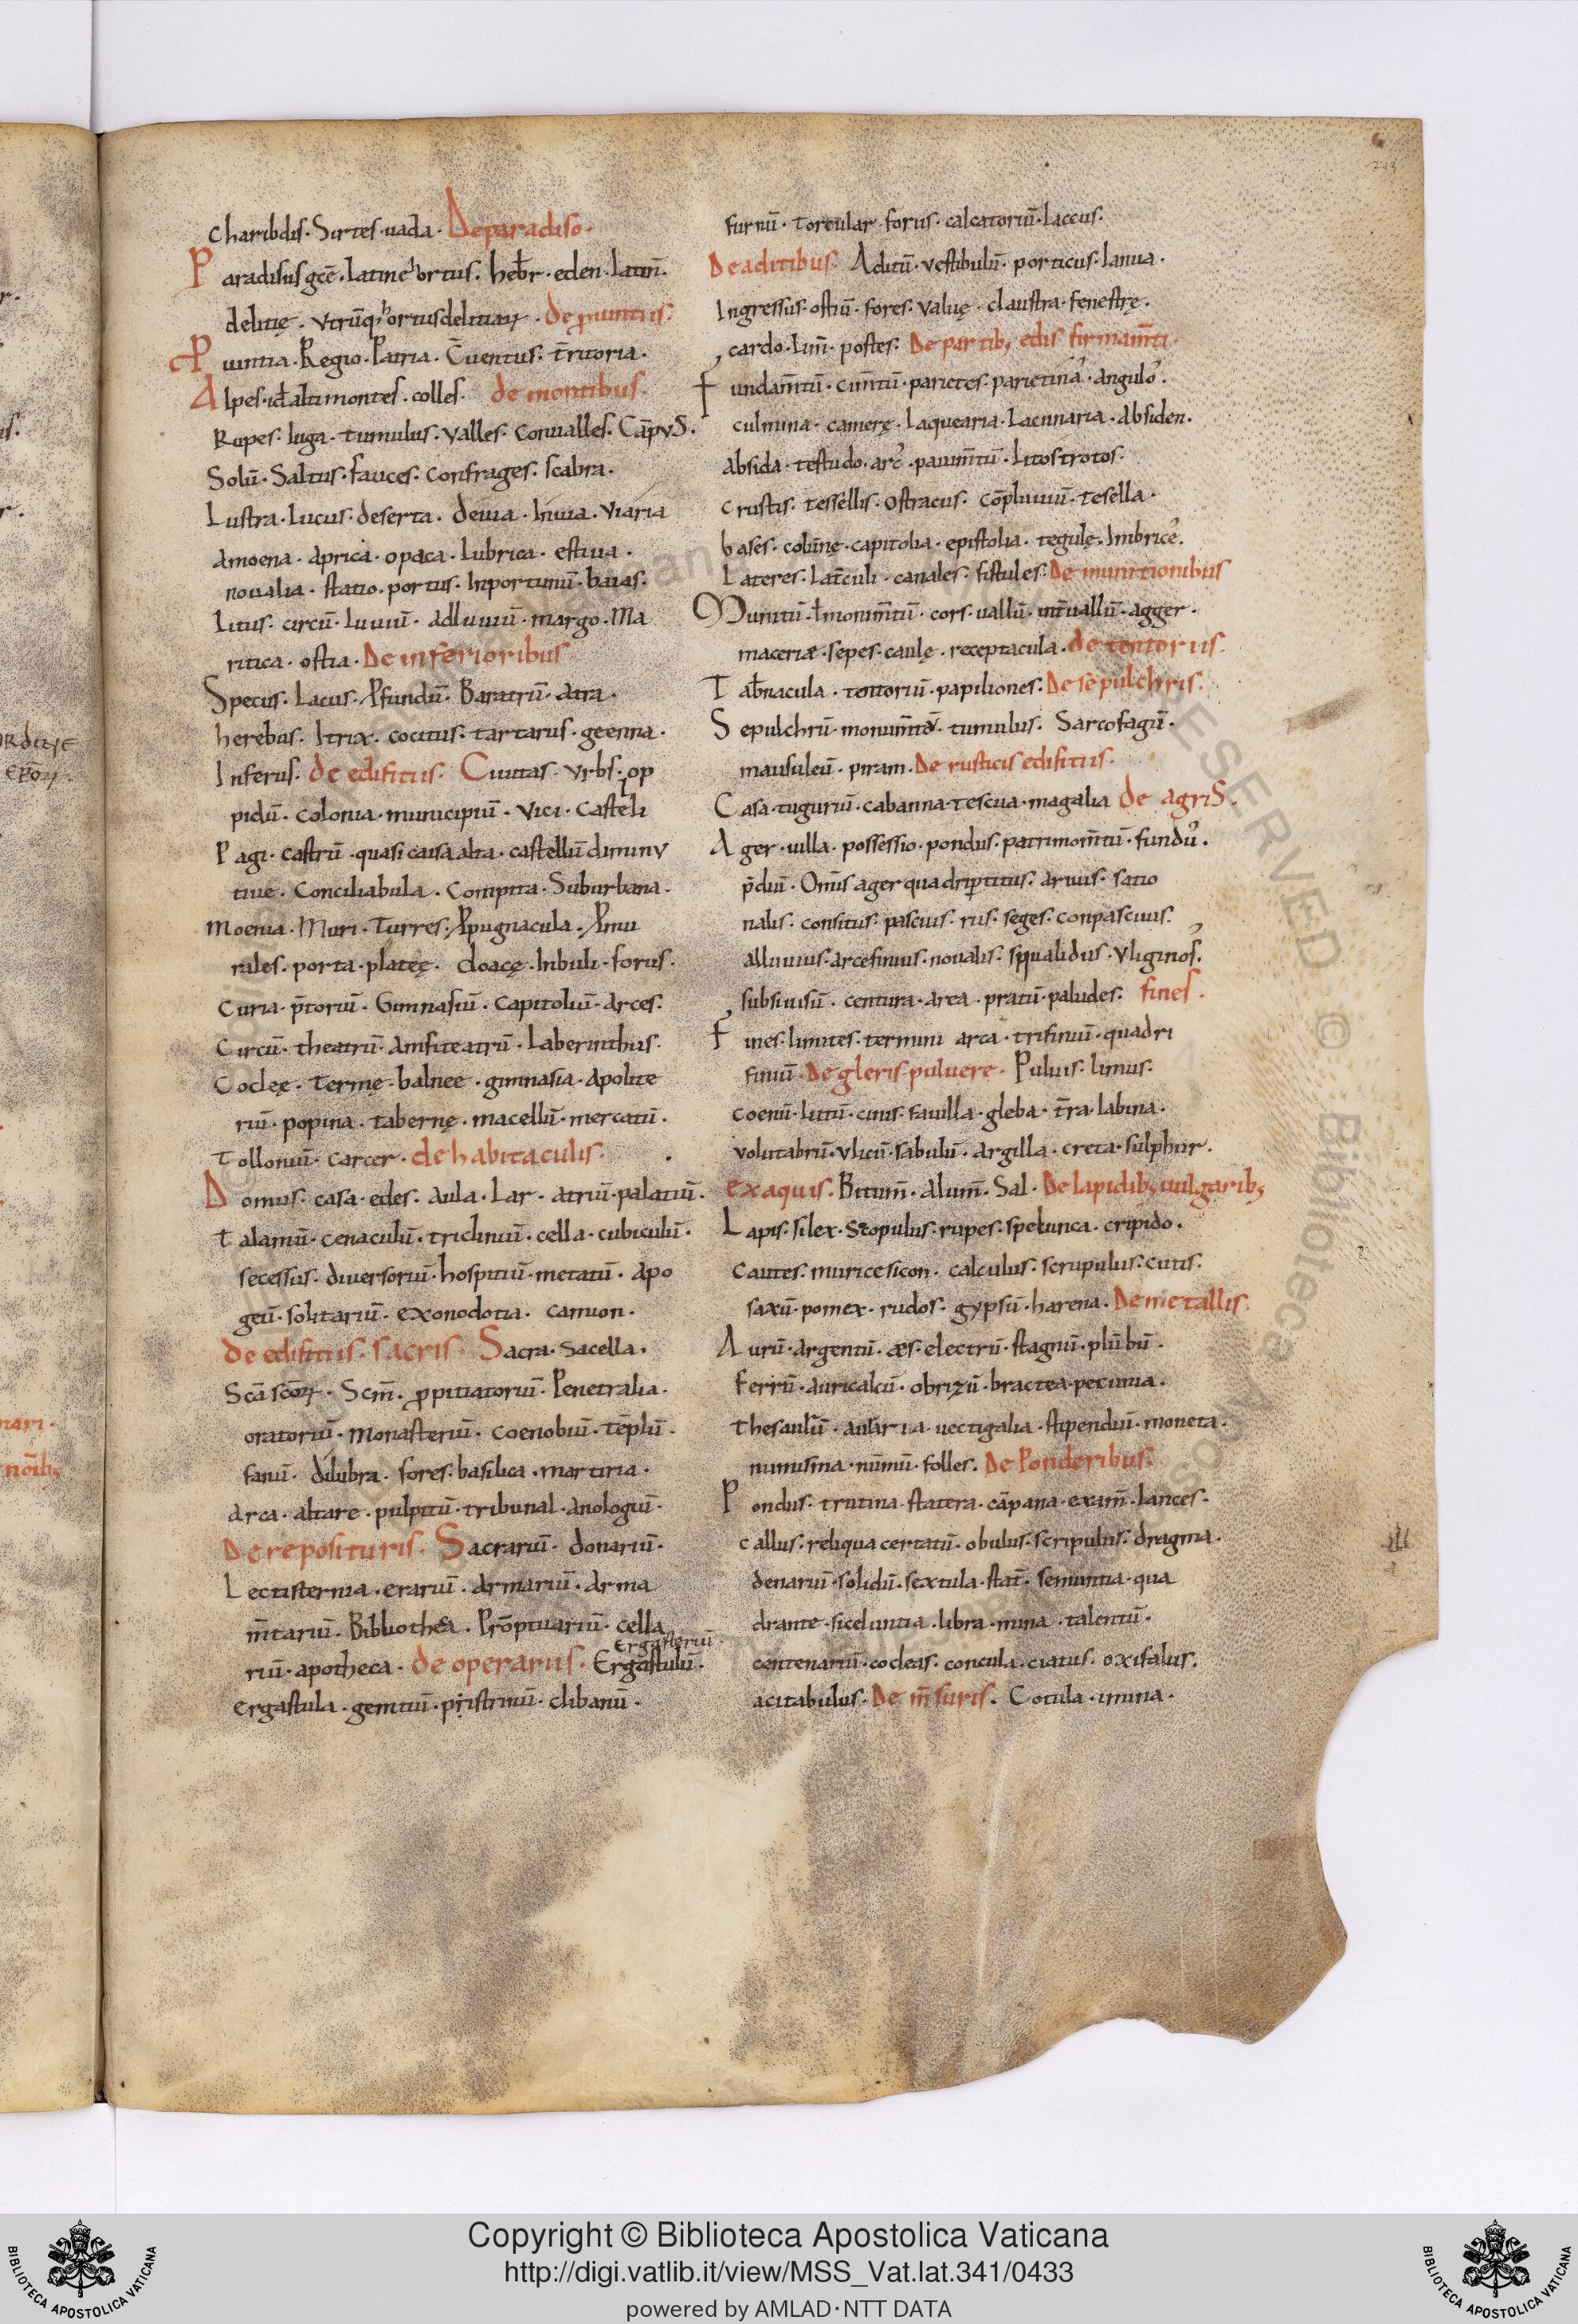 charibdis. Sirtes. uada. De paradiso.
Paradisus gcē. latine hortus. hebr. eden. latin̄.
delitię. vtrūq; hortus delitiaꝝ. de ꝓuintiis.
Ꝓuintia. Regio. Patria. C̄uentus. t̄ritoria.
Alpes. id alti montes. colles. de montibus.
Rupes. Iuga. tumulus. valles. Conualles. Cāpvs.
Solū. Saltus. fauces. confrages. scabra.
Lustra. Lucus. deserta. deuia. Inuia. Viaria
Amoena. Aprica. opaca. Lubrica. estiua.
noualia. statio. portus. Inportunū. baias.
Litus. circū. luuiū. adluuiū. margo. Ma
ritica. ostia. De inferioribus
Specus. Lacus. Ꝓfundū. Baratrū. atra.
herebus. Itrix. cocitus. tartarus. geenna.
Inferus. de edifitiis. Ciuitas. vrbs. op
pidū. Colonia. municipiū. vici. Casteli
Pagi. castrū. quasi casa alta. castellū diminv
tiue. Conciliabula. Compita. Suburbana.
moenia. Muri. Turres. Ꝓpugnacula. Ꝓmu
rales. porta. plateę. cloacę. Inbuli. forus.
Curia. p̄toriū. Gimnasiū. Capitoliū. arces.
Circū. theatrū. Amfiteatrū. Laberinthus.
Cocleę. Termę. balnee. gimnasia. apolite
riū. popina. tabernę. macellū. mercatū.
Tolloniū. carcer. de habitaculis.
Domus. casa. edes. aula. Lar. atriū. palatiū.
Talamū. cenaculū. tricliniū. cella. cubiculū.
secessus. diuersoriū. hospitiū. metatū. Apo
geū. solitariū. exonodotia. camion.
de edifitiis sacris. Sacra. Sacella.
Scā scōꝝ. Scm̄. ꝓpitiatoriū. Penetralia.
oratoriū. Monasteriū. Coenobiū. tēplū.
fanū. dilubra. fores. basilica. martiria.
Arca. altare. pulpitū. tribunal. anologiū.
De reposituris. Sacrariū. donariū.
Lectisternia. erariū. armariū. arma
m̄tariū. Bibliotheca. Prōptuariū. cella
Ergasteriū.
riū. apotheca. de operariis. Ergastulū.
Ergastula. gemtiū. pristrinū. clibanū.
furnū. torcular. forus. calcatoriū. laccus.
De aditibus. Aditū. vestibulū. porticus. Ianua.
Ingressus. ostiū. fores. valuę. claustra. fenestrę.
cardo. Lim̄. postes. De partib; edis firmam̄ti.
Fundam̄tū. cim̄tū. parietes. parietina. angulo.
culmina. camerę. Laquearia. Lacunaria. absiden.
absida. testudo. arc. pauim̄tū. Litostrotos.
crustis. tessellis. ostracus. Cōpluuiū. tesella.
bases. colūnę. capitolia. epistolia. tegulę. Imbrice.
Lateres. Lat̄culi. canales. fistules. De munitionibus
Munitū. ł monim̄tū. cors. vallū. int̄uallū. agger.
maceriæ. sepes. caulę. receptacula. de tentoriis.
Tab̄nacula. tentoriū. papiliones. De sepulchris.
Sepulchrū. monum̄ta. tumulus. Sarcofagū.
mausuleū. piram. De rusticis edifitiis.
Casa. tuguriū. cabanna. tescua. magalia de agris.
Ager. uilla. possessio. pondus. patrimom̄tū. fundu.
p̄diū. Om̄s ager quadripertitus. aruus. satio
nalis. consitus. pascuus. rus. seges. conpascuus.
alluuius. arcefinius. noualis. squalidus. Vliginos.
subsiuisū. centura. area. pratū. paludes. fines.
Fines. limites. termini arca. trifiniū. quadri
finiū. De gleris puluere. Puluis. limus.
coenū. lutū. cinis. fauilla. gleba. t̄ra. labina.
volutabrū. vlicū. sabulū. argilla. creta. sulphur.
ex aquis. Bitum̄. alum̄. Sal. De lapidib; uulgarib;
Lapis. silex. Scopulus. rupes. spelunca. cripido.
cautes. murices icon. calculus. scrupulus. cutis.
saxū. pomex. rudos. gypsū. harena. De metallis.
Aurū. argentū. æs. electrū. stagnū. plūbū.
ferrū. auricalcū. obrizū. bractea. pecunia.
thesaurū. auraria. uectigalia. stipendiū. moneta.
numisma. nūmū. folles. De Ponderibus.
Pondus. trutina. statera. cāpana. exam̄. lances.
callus. reliqua certatū. obulus. scripulus. dragma.
denariū. solidū. sextula. stat̄. semuntia. qua
drante. siceluntia. libra. mina. talentū.
centenariū. cocleas. concula. ciatus. oxifalus.
acitabulus. De m̄suris. Cotula. imina.
Copyright © Biblioteca Apostolica Vaticana
http://digi.vatlib.it/view/MSS_Vat.lat.341/0433
powered by AMLAD·NTT DATA
BIBLIOTECA APOSTOLICA VATICANA
BIBLIOTECA APOSTOLICA VATICANA